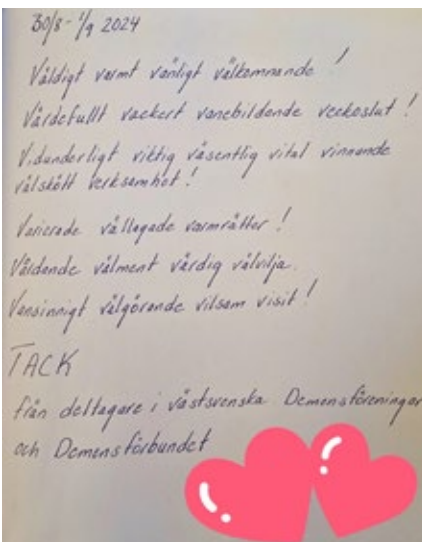 30/8 - 1/9 2024
Väldigt varmt vänligt välkomnande!
Värdefullt vackert vanebildande veckoslut!
Vidunderligt viktig väsentlig vital vinnande
välskött verksamhet!
Varierade vällagade varmrätter!
Vårdande välment värdig välvilja.
Vansinnigt välgörande vilsam visit!
TACK
från deltagare i västsvenska Demensföreningar
och Demensförbundet